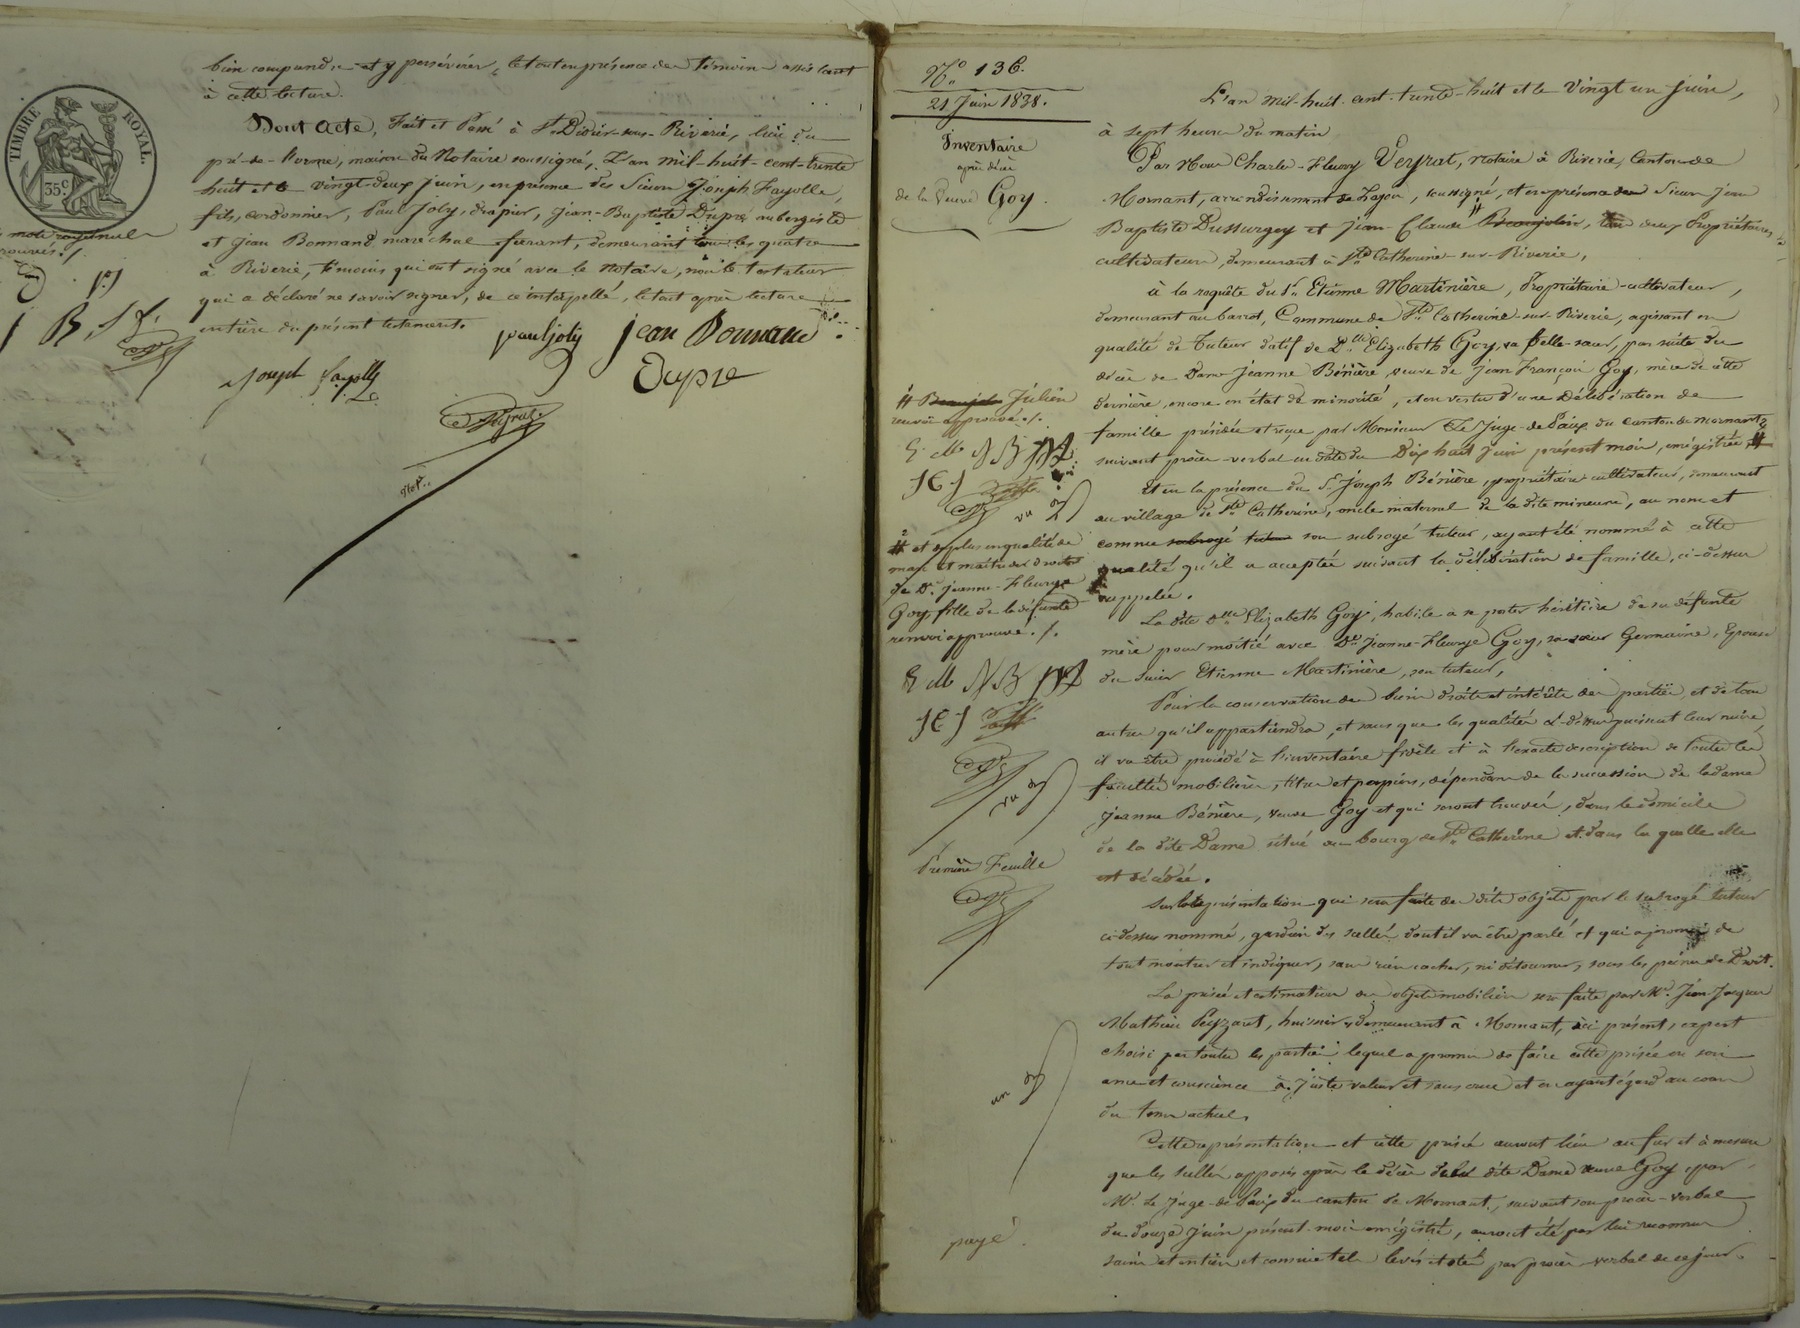 bien comprendre et y persévérer, le tout en présence des témoins assistant
à cette lecture.
Dont acte, Fait et Passé à St Didier-sous-Riverie, lieu du
pré-de-l'orme, maison du Notaire soussigné, L'an mil-huit-cent-trente
huit et le vingt-deux juin, en présence des Sieurs Joseph Fayolle,
fils, cordonnier, Paul Joly, drapier, Jean-Baptiste Dupré aubergiste
et Jean Bonnand maréchal ferrant, demeurant tous les quatre
à Riverie, témoins qui ont signé avec le Notaire, non le testateur
qui a déclaré ne savoir signer, de ce interpellé, le tout après lecture
entière du présent testament.
TIMBRE ROYAL.
35c
paul joly jean Bonnand
Joseph Fayolle Dupré
N° 136.
21 Juin 1838.
Inventaire
après décès
de la Veuve Goy.
L'an mil-huit-cent-trente-huit et le vingt un juin,
à sept heures du matin
Par Nous Charles-Fleury Veyrat, notaire à Riverie, Canton de
Mornant, arrondissement de Lyon, soussigné, et en présence des Sieurs Jean
Baptiste Dussurgey et Jean-Claude # Beaujolin, tous deux Propriétaires
cultivateurs, demeurant à Ste Catherine-sur-Riverie,
à la requête du Sr Etienne Martinière, Propriétaire-cultivateur,
demeurant au barrot, Commune de Ste Catherine-sur-Riverie, agissant en
qualité de tuteur datif de Dlle Elizabeth Goy, sa belle-soeur, par suite du
décès de Dame Jeanne Bénière, veuve de Jean François Goy, mère de cette
dernière, encore en état de minorité, et en vertu d'une délibération de
famille présidée et reçue par Monsieur le Juge-de-Paix du canton de Mornant
suivant procès-verbal en date du Dix huit Juin présent mois, enregistrée, #
Et en la présence du Sr Joseph Bénière, propriétaire cultivateur, demeurant
au village de Ste Catherine, oncle maternel de la dite mineure, au nom et
comme subrogé tuteur son subrogé tuteur, ayant été nommé à cette
qualité qu'il a acceptée suivant la délibération de famille, ci-dessus
rappelée.
La dite Dlle Elizabeth Goy, habile à se porter héritière de sa défunte
mère pour moitié avec De Jeanne-Fleurye Goy, sa soeur Germaine, Epouse
du Sieur Etienne Martinière, son tuteur,
Pour la conservation des biens droits et intérêts des parties et de tous
autres qu'il appartiendra, et sans que les qualités ci-dessus puissent leur nuire,
il va être procédé à l'inventaire fidèle et à l'exacte description de toutes les
facultés mobilières, titres et papiers, dépendans de la succession de la dame
Jeanne Bénière, veuve Goy et qui seront trouvés, dans le domicile
de la dite Dame situé au bourg de Ste Catherine et dans la quelle elle
est décédée.
Sur la représentation qui sera faite des dits objets par le subrogé tuteur
ci-dessus nommé, gardien des scellés dont il va être parlé et qui a promis de
tout montrer et indiquer, sans rien cacher, ni détourner, sous les peines de Droit.
La prisée et estimation des objets mobiliers sera faite par Mr Jean-Jacques
Mathieu Peyzaret, huissier, demeurant à Mornant, à ci présent, expert
choisi par toutes les parties lequel a promis de faire cette prisée en son
ame et conscience à juste valeur et sans crue et en ayant égard au cours
du tems actuel.
Cette représentation et cette prisée auront lieu au fur et à mesure
que les scellés apposés après le décès de la dite Dame veuve Goy, par
Mr le Juge-de-Paix du canton de Mornant, suivant son procès-verbal
du douze Juin présent mois enregistré, auront été par lui reconnus
sains et entiers et comme tels levés et otés par procès-verbal de ce jour.
# Beaujolin Julien
renvoi approuvé ./.
E. M. J B
J C J
2 # et de plus en qualité de
mari et maître des droits
de De Jeanne-Fleurye
Goy, fille de la défunte
renvoi approuvé ./.
E M J B
J C J
Première Feuille
payé